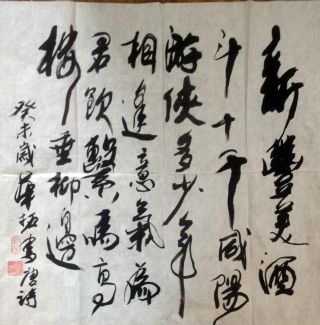 新豐美酒
斗十千咸陽
游俠多少年
相逢意氣為
君飲繫馬高
樓垂柳邊
癸未歲華坂書唐詩